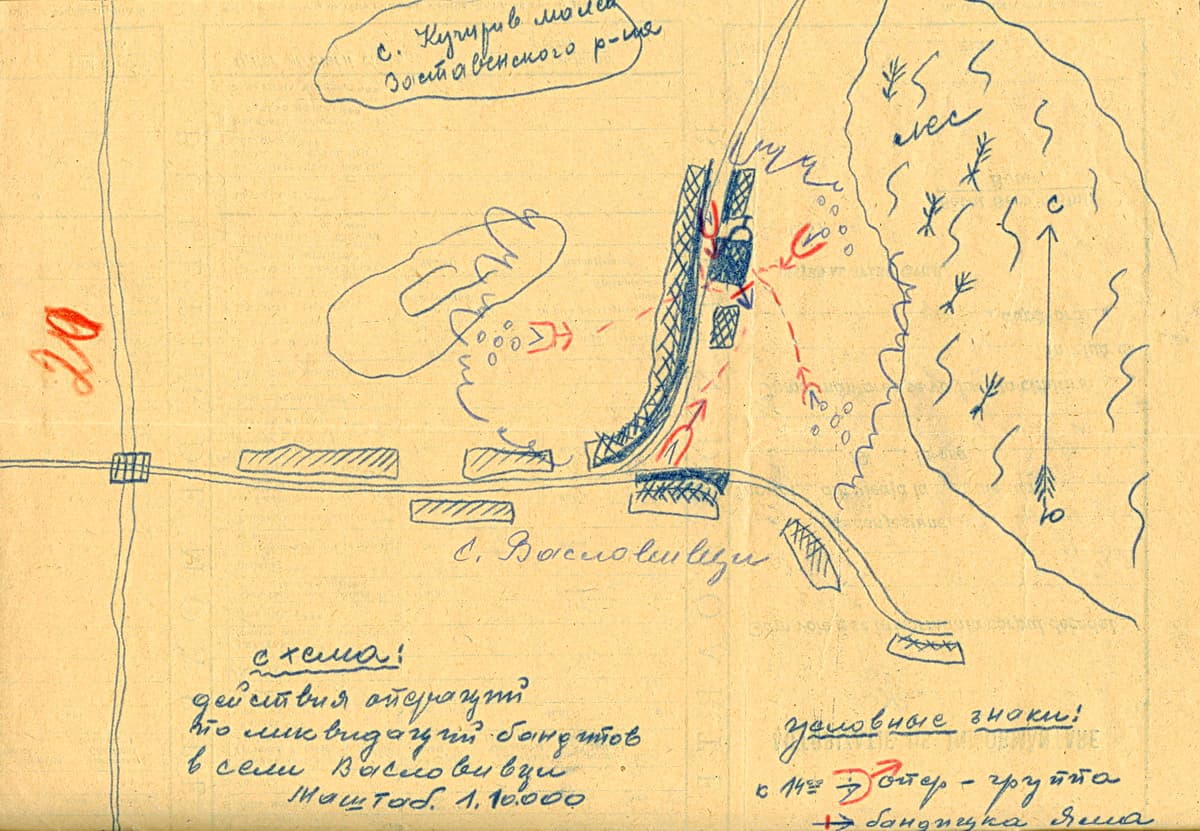 с. Кучурив малса
Заставенского р-на
лес
С
20
Ю
с. Васловивци
схема:
действия операций
по ликвидаций бандитов
в сели Васловивци
Маштаб. 1.10.000
условные знаки:
к 14⁰⁰ опер-группа
бандитска Яма